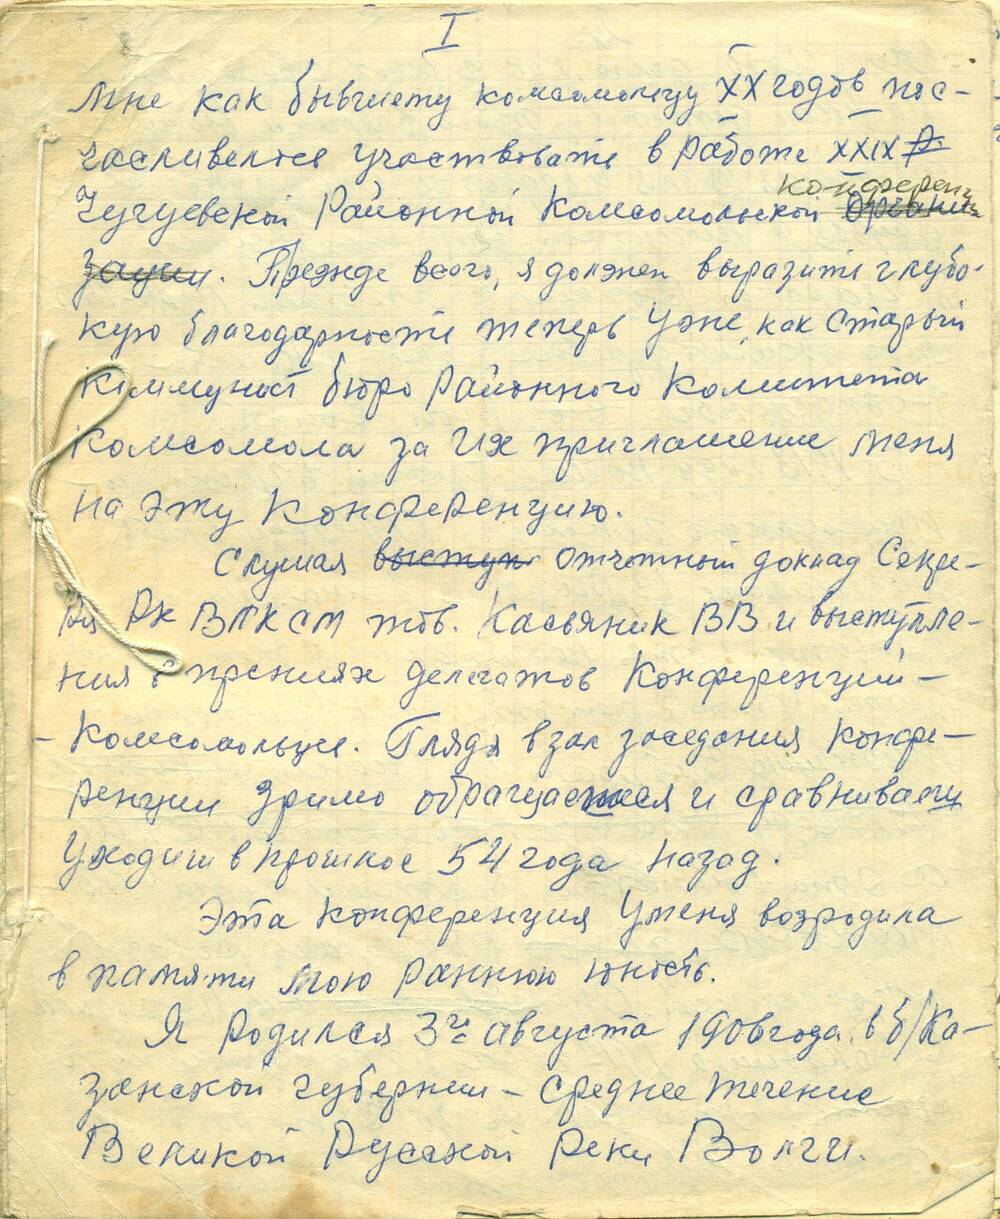 I
Мне как бывшему комсомольцу XX годов пос-
часливелось участвовать в работе XXIX й
конференц
Чугуевской Районной Комсомольской Органи
зации. Прежде всего, я должен выразить глубо-
кую благодарность теперь уже, как старый
Коммунист бюро Районного Комитета
Комсомола за их приглашение меня
на эту Конференцию.
Слушая выступ отчетный доклад Секре-
ря Рк ВЛКСМ тов. Касьяник ВВ и выступле-
ния в прениях делегатов Конференции-
- Комсомольцев. Глядя в зал заседания конфе-
ренции зримо обращаешься и сравниваеш
Уходиш в прошлое 54 года назад.
Эта конференция у меня возродила
в памяти мою раннюю юность.
Я родился 3го августа 1906 года в б/Ка-
занской губернии - среднее течение
Великой Русской реки Волги.